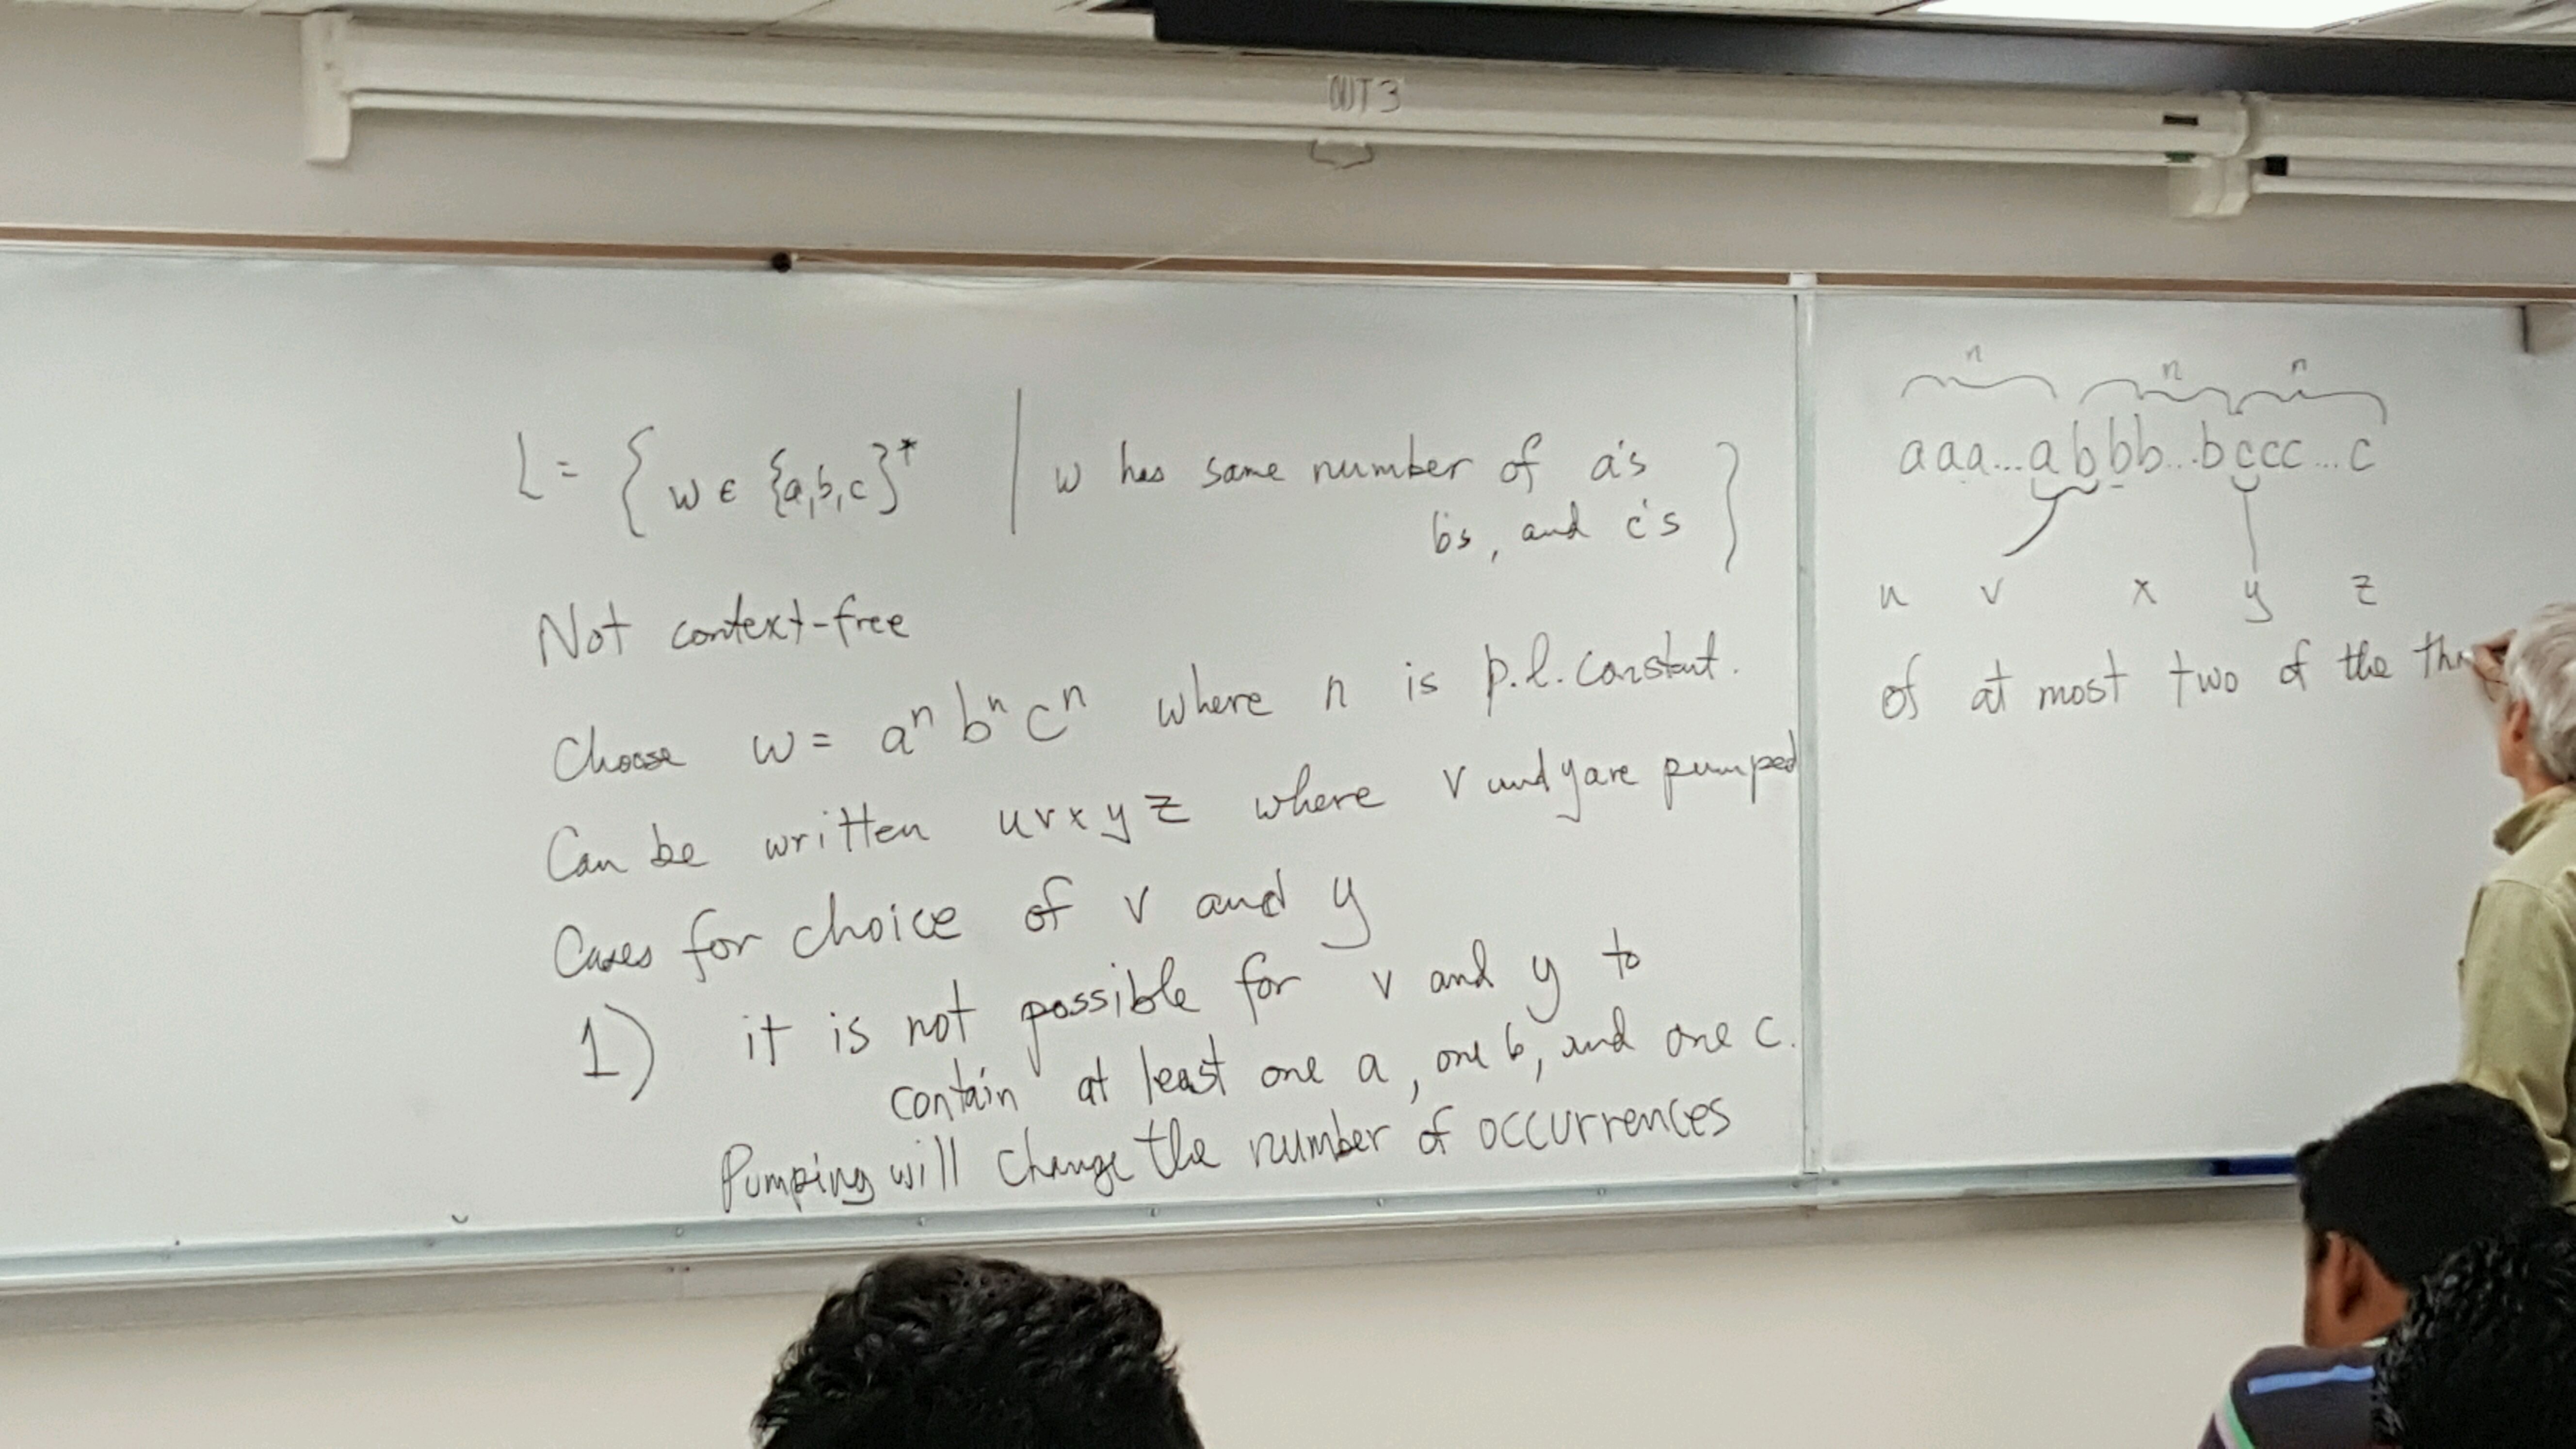 OUT 3
L = { w ∈ {a,b,c}* | w has same number of a's
b's, and c's }
Not context-free
Choose w = aⁿ bⁿ cⁿ where n is p.l. constant.
Can be written uvxyz where v and y are pumped
Cases for choice of v and y
1) it is not possible for v and y to
contain at least one a, one b, and one c.
Pumping will change the number of occurrences
n n n
aaa...abbb...bccc...c
u v x y z
of at most two of the thr